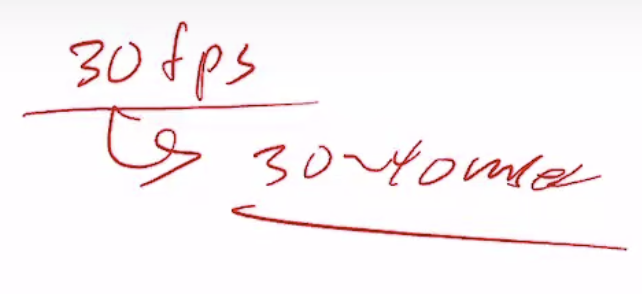 30fps
30~40msec